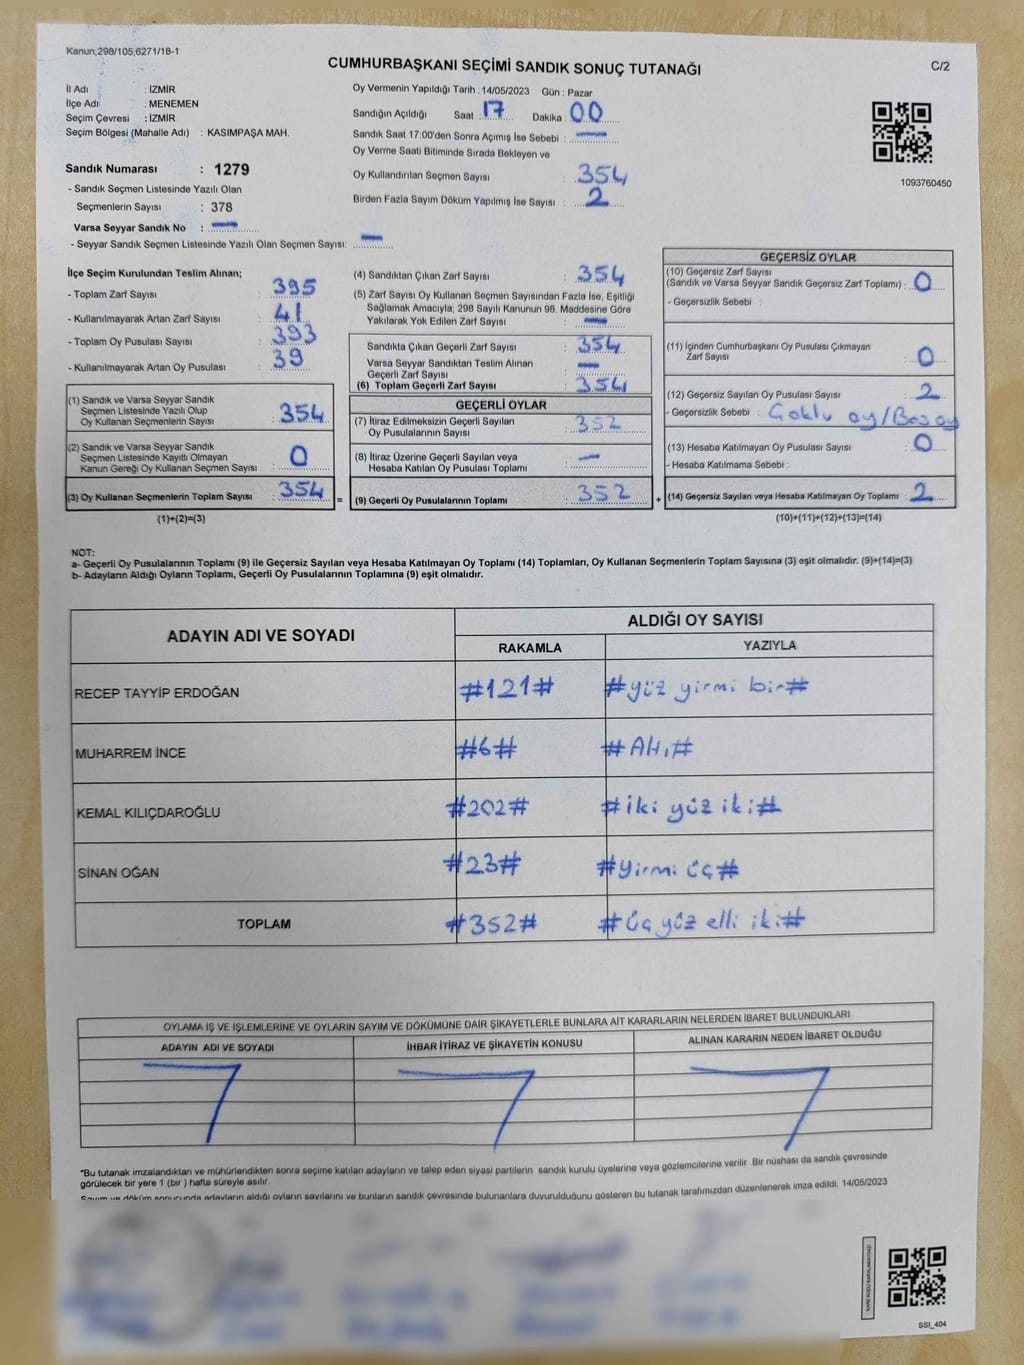 Kanun;298/105;6271/18-1
CUMHURBAŞKANI SEÇİMİ SANDIK SONUÇ TUTANAĞI
C/2
İl Adı : İZMİR
İlçe Adı : MENEMEN
Seçim Çevresi : İZMİR
Seçim Bölgesi (Mahalle Adı) : KASIMPAŞA MAH.
Sandık Numarası : 1279
- Sandık Seçmen Listesinde Yazılı Olan
Seçmenlerin Sayısı : 378
Varsa Seyyar Sandık No : —
- Seyyar Sandık Seçmen Listesinde Yazılı Olan Seçmen Sayısı: —
Oy Vermenin Yapıldığı Tarih : 14/05/2023 Gün : Pazar
Sandığın Açıldığı Saat : 17 Dakika : 00
Sandık Saat 17:00'den Sonra Açımış İse Sebebi : —
Oy Verme Saati Bitiminde Sırada Bekleyen ve
Oy Kullandırılan Seçmen Sayısı : 354
Birden Fazla Sayım Döküm Yapılmış İse Sayısı : 2
1093760450
İlçe Seçim Kurulundan Teslim Alınan;
- Toplam Zarf Sayısı : 395
- Kullanılmayarak Artan Zarf Sayısı : 41
- Toplam Oy Pusulası Sayısı : 393
- Kullanılmayarak Artan Oy Pusulası : 39
(1) Sandık ve Varsa Seyyar Sandık
Seçmen Listesinde Yazılı Olup
Oy Kullanan Seçmenlerin Sayısı : 354
(2) Sandık ve Varsa Seyyar Sandık
Seçmen Listesinde Kayıtlı Olmayan
Kanun Gereği Oy Kullanan Seçmen Sayısı : 0
(3) Oy Kullanan Seçmenlerin Toplam Sayısı : 354 =
(1)+(2)=(3)
(4) Sandıktan Çıkan Zarf Sayısı : 354
(5) Zarf Sayısı Oy Kullanan Seçmen Sayısından Fazla İse, Eşitliği
Sağlamak Amacıyla; 298 Sayılı Kanunun 98. Maddesine Göre
Yakılarak Yok Edilen Zarf Sayısı : —
Sandıkta Çıkan Geçerli Zarf Sayısı : 354
Varsa Seyyar Sandıktan Teslim Alınan
Geçerli Zarf Sayısı : —
(6) Toplam Geçerli Zarf Sayısı : 354
GEÇERLİ OYLAR
(7) İtiraz Edilmeksizin Geçerli Sayılan
Oy Pusulalarının Sayısı : 352
(8) İtiraz Üzerine Geçerli Sayılan veya
Hesaba Katılan Oy Pusulası Toplamı : —
(9) Geçerli Oy Pusulalarının Toplamı : 352 +
GEÇERSİZ OYLAR
(10) Geçersiz Zarf Sayısı
(Sandık ve Varsa Seyyar Sandık Geçersiz Zarf Toplamı) : 0
- Geçersizlik Sebebi :
(11) İçinden Cumhurbaşkanı Oy Pusulası Çıkmayan
Zarf Sayısı : 0
(12) Geçersiz Sayılan Oy Pusulası Sayısı : 2
- Geçersizlik Sebebi : Çoklu oy/Boş oy
(13) Hesaba Katılmayan Oy Pusulası Sayısı : 0
- Hesaba Katılmama Sebebi :
(14) Geçersiz Sayılan veya Hesaba Katılmayan Oy Toplamı : 2
(10)+(11)+(12)+(13)=(14)
NOT:
a- Geçerli Oy Pusulalarının Toplamı (9) ile Geçersiz Sayılan veya Hesaba Katılmayan Oy Toplamı (14) Toplamları, Oy Kullanan Seçmenlerin Toplam Sayısına (3) eşit olmalıdır. (9)+(14)=(3)
b- Adayların Aldığı Oyların Toplamı, Geçerli Oy Pusulalarının Toplamına (9) eşit olmalıdır.
ADAYIN ADI VE SOYADI
ALDIĞI OY SAYISI
RAKAMLA YAZIYLA
RECEP TAYYİP ERDOĞAN #121# #yüz yirmi bir#
MUHARREM İNCE #6# #Altı#
KEMAL KILIÇDAROĞLU #202# #iki yüz iki#
SİNAN OĞAN #23# #Yirmi üç#
TOPLAM #352# #üç yüz elli iki#
OYLAMA İŞ VE İŞLEMLERİNE VE OYLARIN SAYIM VE DÖKÜMÜNE DAİR ŞİKAYETLERLE BUNLARA AİT KARARLARIN NELERDEN İBARET BULUNDUKLARI
ADAYIN ADI VE SOYADI İHBAR İTİRAZ VE ŞİKAYETİN KONUSU ALINAN KARARIN NEDEN İBARET OLDUĞU
*Bu tutanak imzalandıktan ve mühürlendikten sonra seçime katılan adayların ve talep eden siyasi partilerin sandık kurulu üyelerine veya gözlemcilerine verilir .Bir nüshası da sandık çevresinde
görülecek bir yere 1 (bir ) hafta süreyle asılır.
Sayım ve döküm sonucunda adayların aldığı oyların sayılarını ve bunların sandık çevresinde bulunanlara duyurulduğunu gösteren bu tutanak tarafımızdan düzenlenerek imza edildi. 14/05/2023
KARE KODU KARALAMAYINIZ!
SSI_404